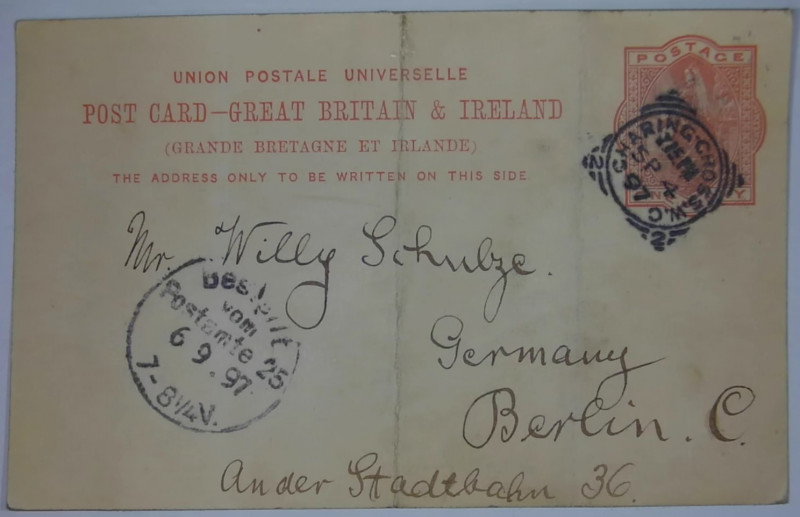 POSTAGE
UNION POSTALE UNIVERSELLE
POST CARD—GREAT BRITAIN & IRELAND
(GRANDE BRETAGNE ET IRLANDE)
THE ADDRESS ONLY TO BE WRITTEN ON THIS SIDE
CHARING·CROSS.W.C
SP 4
97
2
2
Mr. Willy Schulze.
Bestellt
vom
Postamte 25
6 9. 97
7-8¼V.
Germany
Berlin. C.
An der Stadtbahn 36.